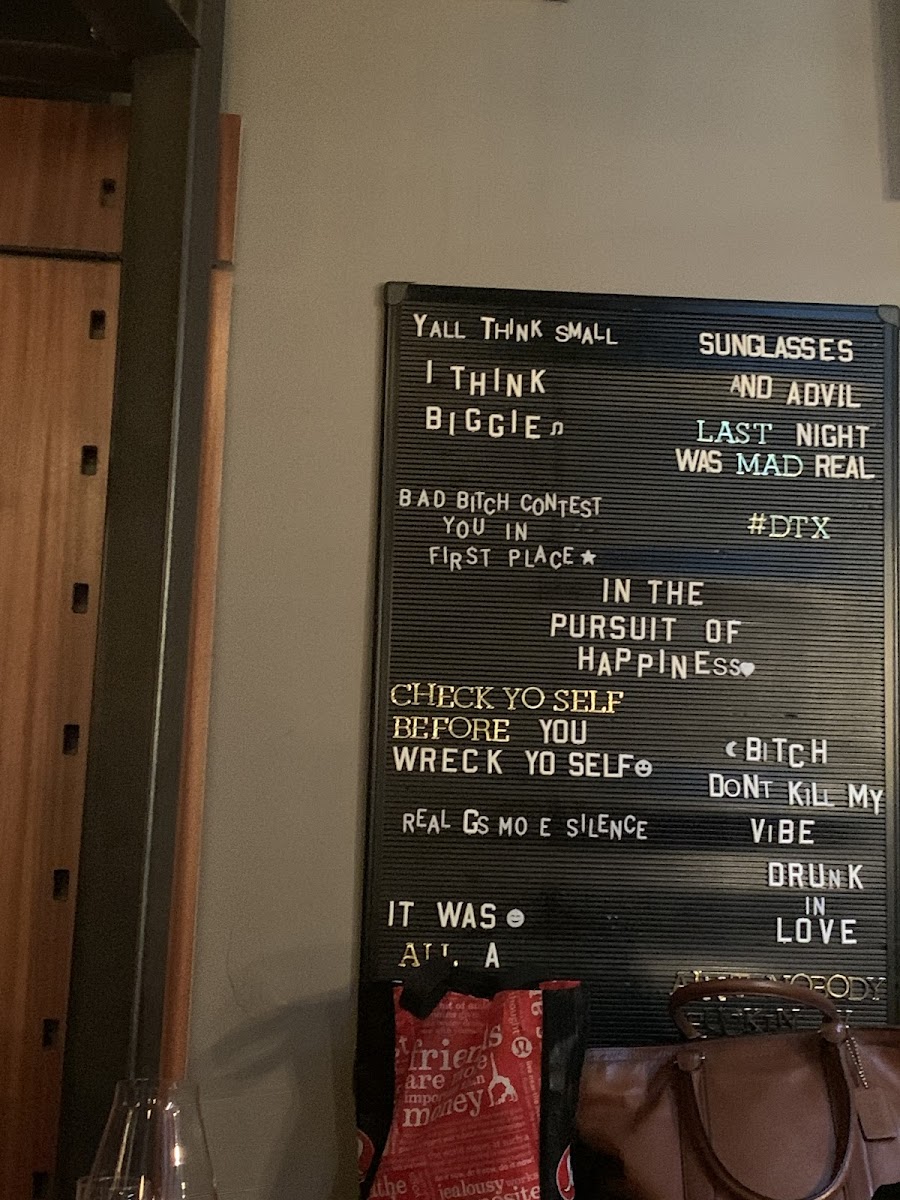 YALL THINK SMALL
I THINK
BIGGIE♫
BAD BITCH CONTEST
YOU IN
FIRST PLACE★
SUNGLASSES
AND ADVIL
LAST NIGHT
WAS MAD REAL
#DTX
IN THE
PURSUIT OF
HAPPINESS♥
CHECK YO SELF
BEFORE YOU
WRECK YO SELF☻
REAL GS MO E SILENCE
IT WAS☻
ALL A
☾BITCH
DONT KILL MY
VIBE
DRUNK
IN
LOVE
AINT NOBODY
friends
are more
money
jealousy